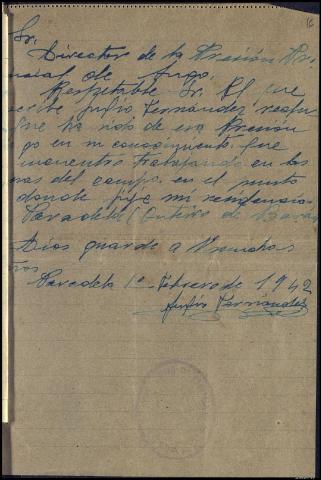 16
Sr.
Director de la Prisión Pro
vincial de Lugo.
Respetable Sr. El que
scribe Julio Fernández resfu
que ha sido de esa Prision
go en su conocimiento que
encuentro trabajando en las
nas del campo en el punto
donde fije mi residencia
Paradela
Dios guarde a V muchos
ños
Paradela 1º Febrero de 1942
Julio Fernández